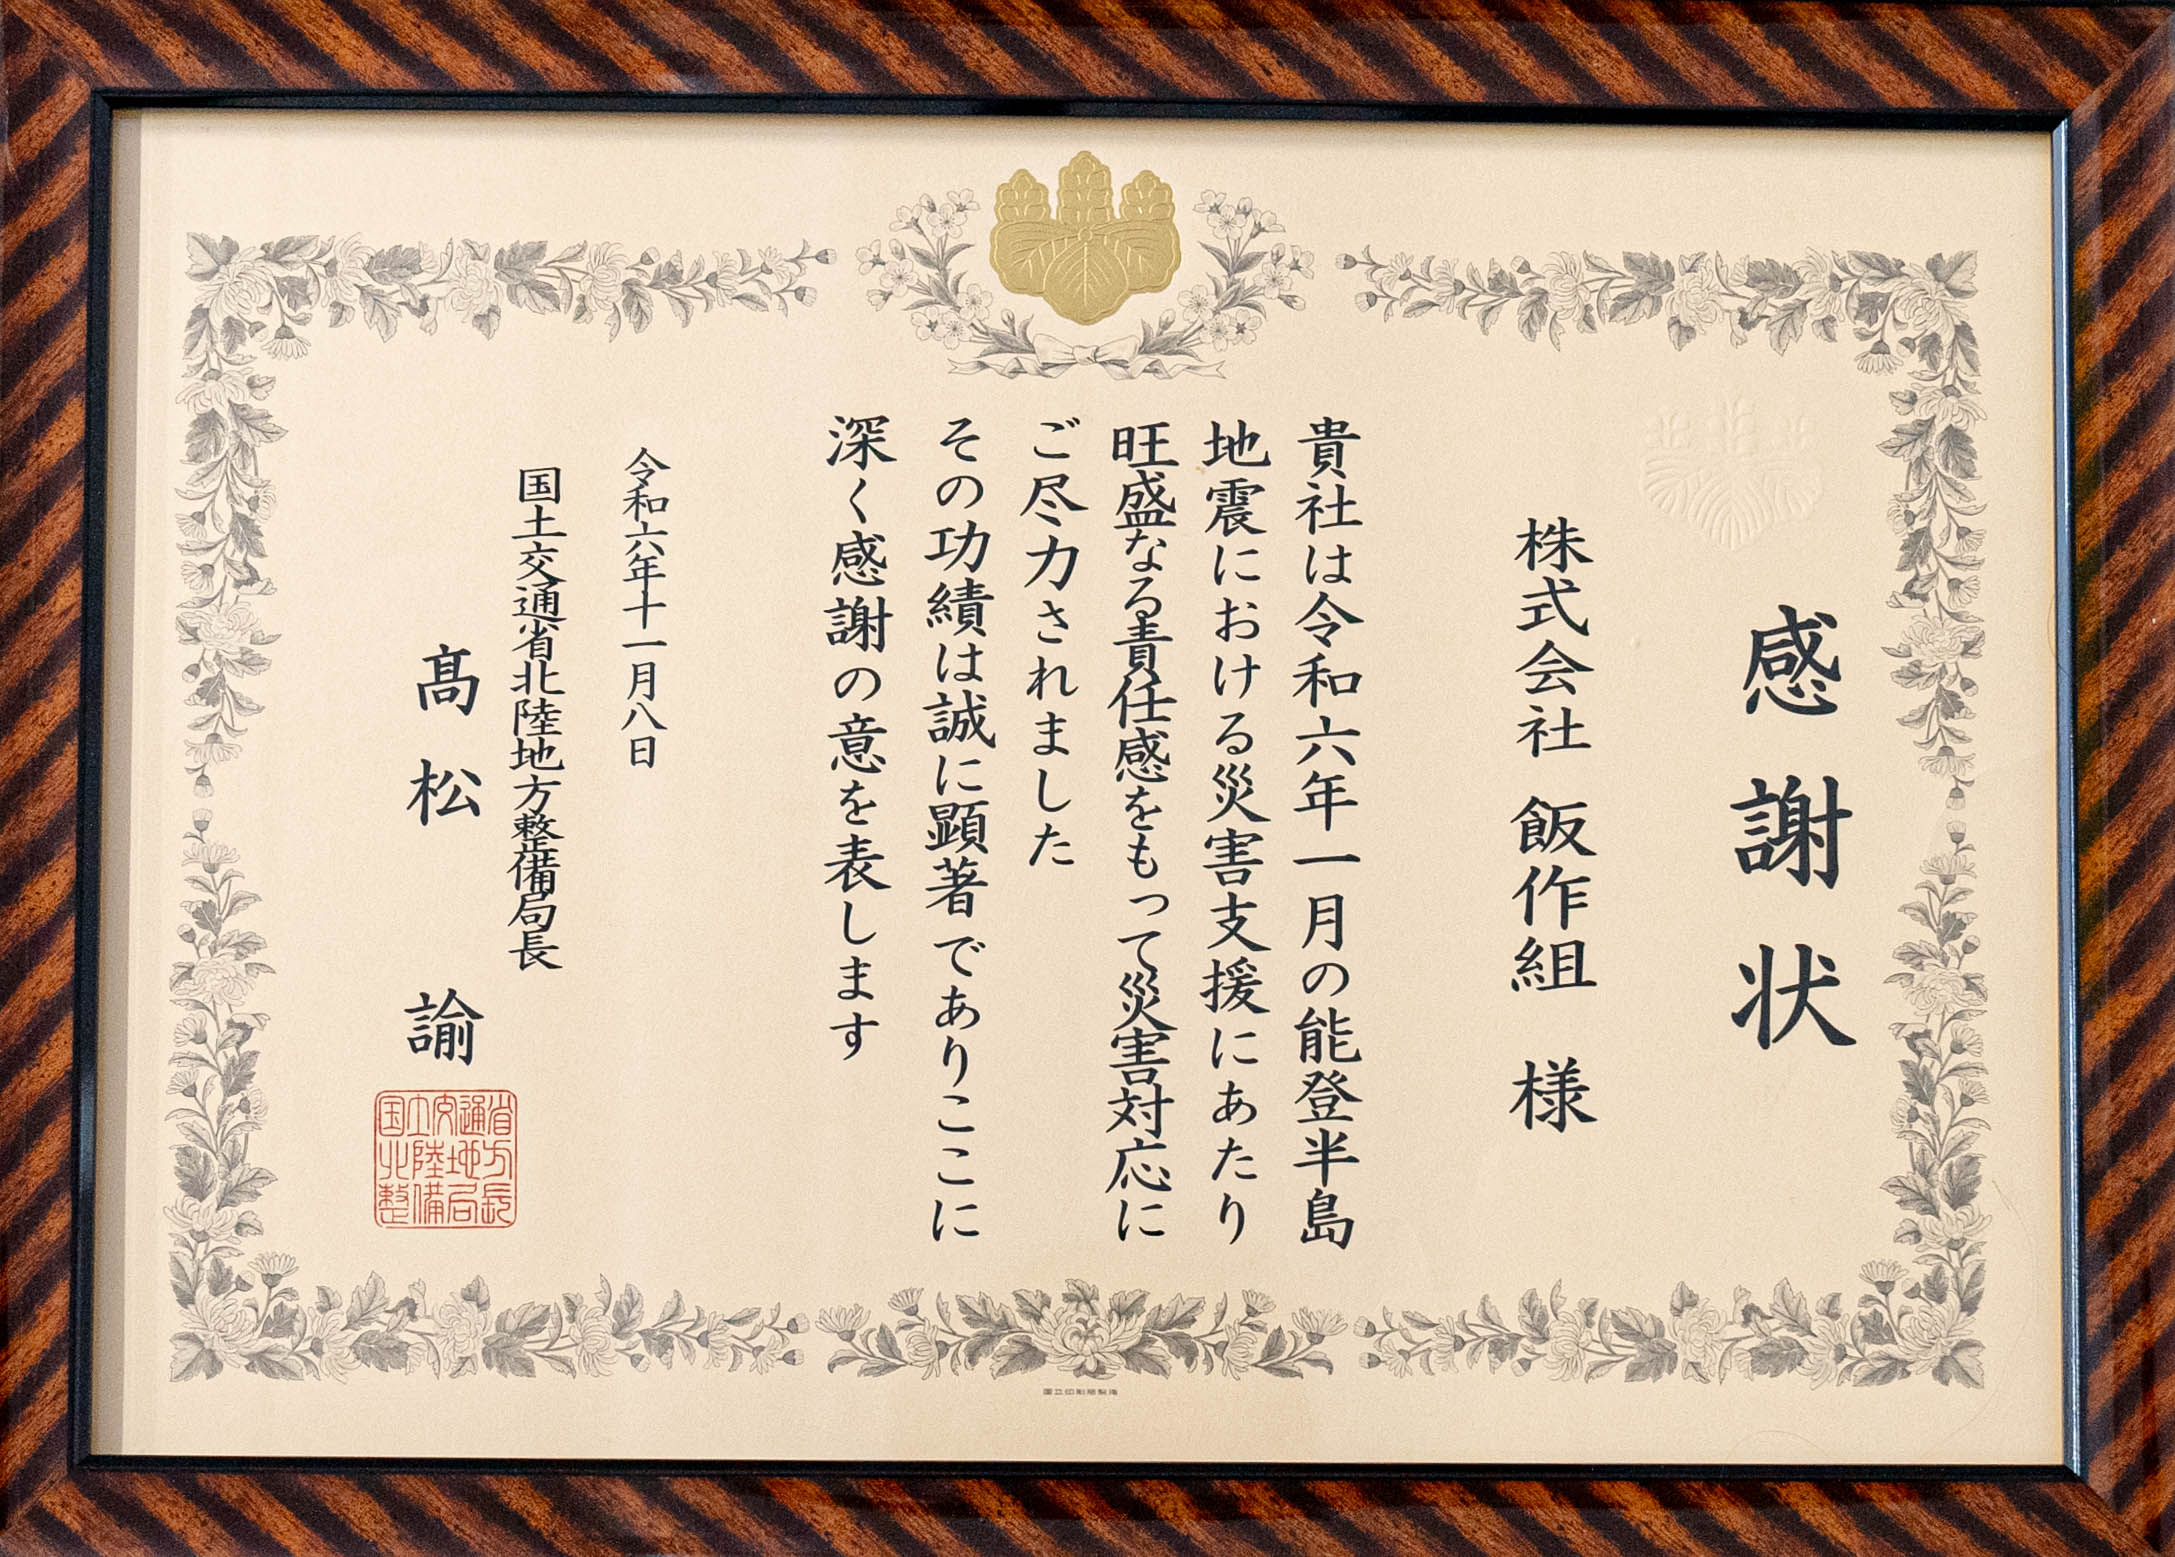 感謝状
株式会社 飯作組 様
貴社は令和六年一月の能登半島
地震における災害支援にあたり
旺盛なる責任感をもって災害対応に
ご尽力されました
その功績は誠に顕著でありここに
深く感謝の意を表します
令和六年十一月八日
国土交通省北陸地方整備局長
髙松 諭
国土交通省
北陸地方
整備局長
国立印刷局製造